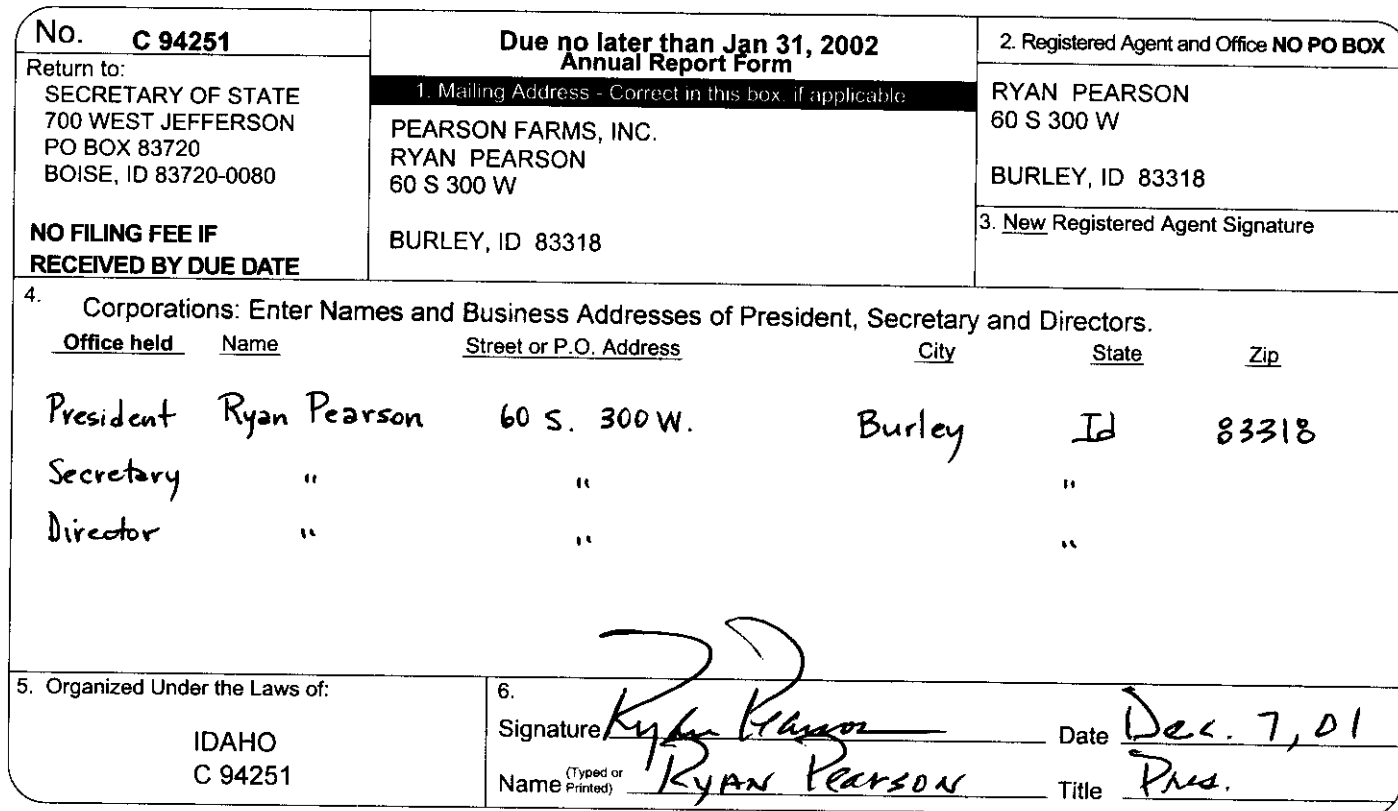 No. C 94251
Return to:
SECRETARY OF STATE
700 WEST JEFFERSON
PO BOX 83720
BOISE, ID 83720-0080
NO FILING FEE IF
RECEIVED BY DUE DATE
Due no later than Jan 31, 2002
Annual Report Form
1. Mailing Address - Correct in this box, if applicable
PEARSON FARMS, INC.
RYAN PEARSON
60 S 300 W
BURLEY, ID 83318
2. Registered Agent and Office NO PO BOX
RYAN PEARSON
60 S 300 W
BURLEY, ID 83318
3. New Registered Agent Signature
4. Corporations: Enter Names and Business Addresses of President, Secretary and Directors.
Office held Name Street or P.O. Address City State Zip
President Ryan Pearson 60 S. 300 W. Burley Id 83318
Secretary " " "
Director " " "
5. Organized Under the Laws of:
IDAHO
C 94251
6.
Signature Ryan Pearson Date Dec. 7, 01
Name (Typed or Printed) RYAN PEARSON Title Pres.